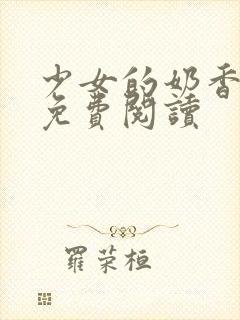 少女的奶香
免費閱讀
羅荣桓